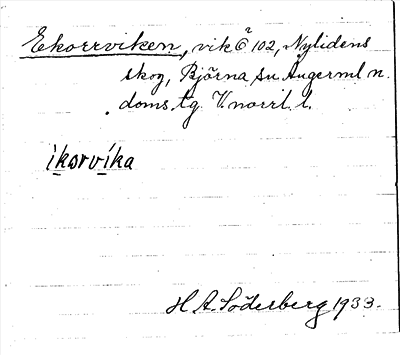 Ekorrviken, vik Ö 102, Nylidens
skog, Björna sn Ångerml n.
doms. tg. V. norrl. l.
ikorvika
H. A. Söderberg 1933.